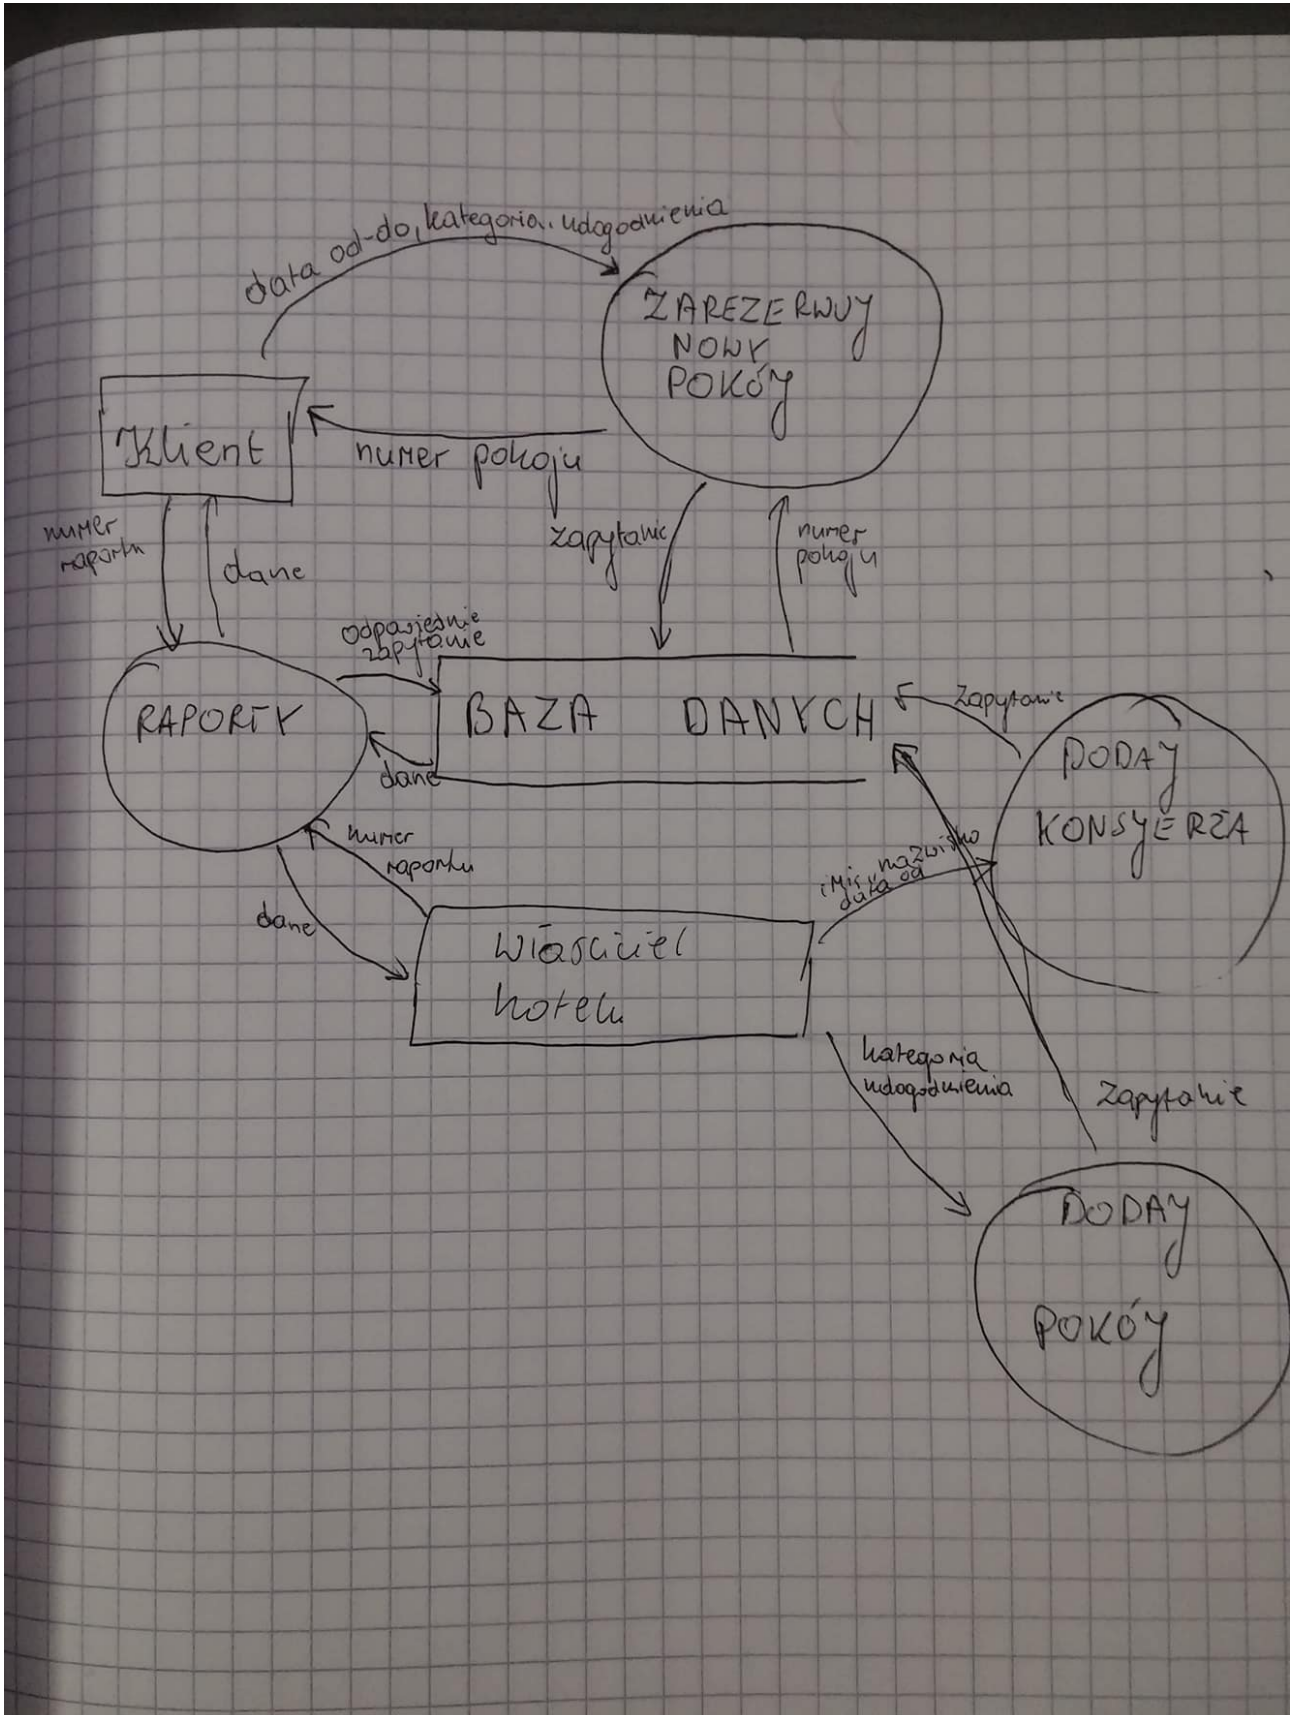 data od-do, kategoria, udogodnienia
ZAREZERWUJ
NOWY
POKÓJ
Klient
numer pokoju
numer
raportu
dane
zapytanie
numer
pokoju
odpowiednie
zapytanie
RAPORTY
BAZA DANYCH
zapytanie
DODAJ
KONSJERŻA
dane
numer
raportu
imię, nazwisko
data od
dane
właściciel
hotelu
kategoria
udogodnienia
zapytanie
DODAJ
POKÓJ